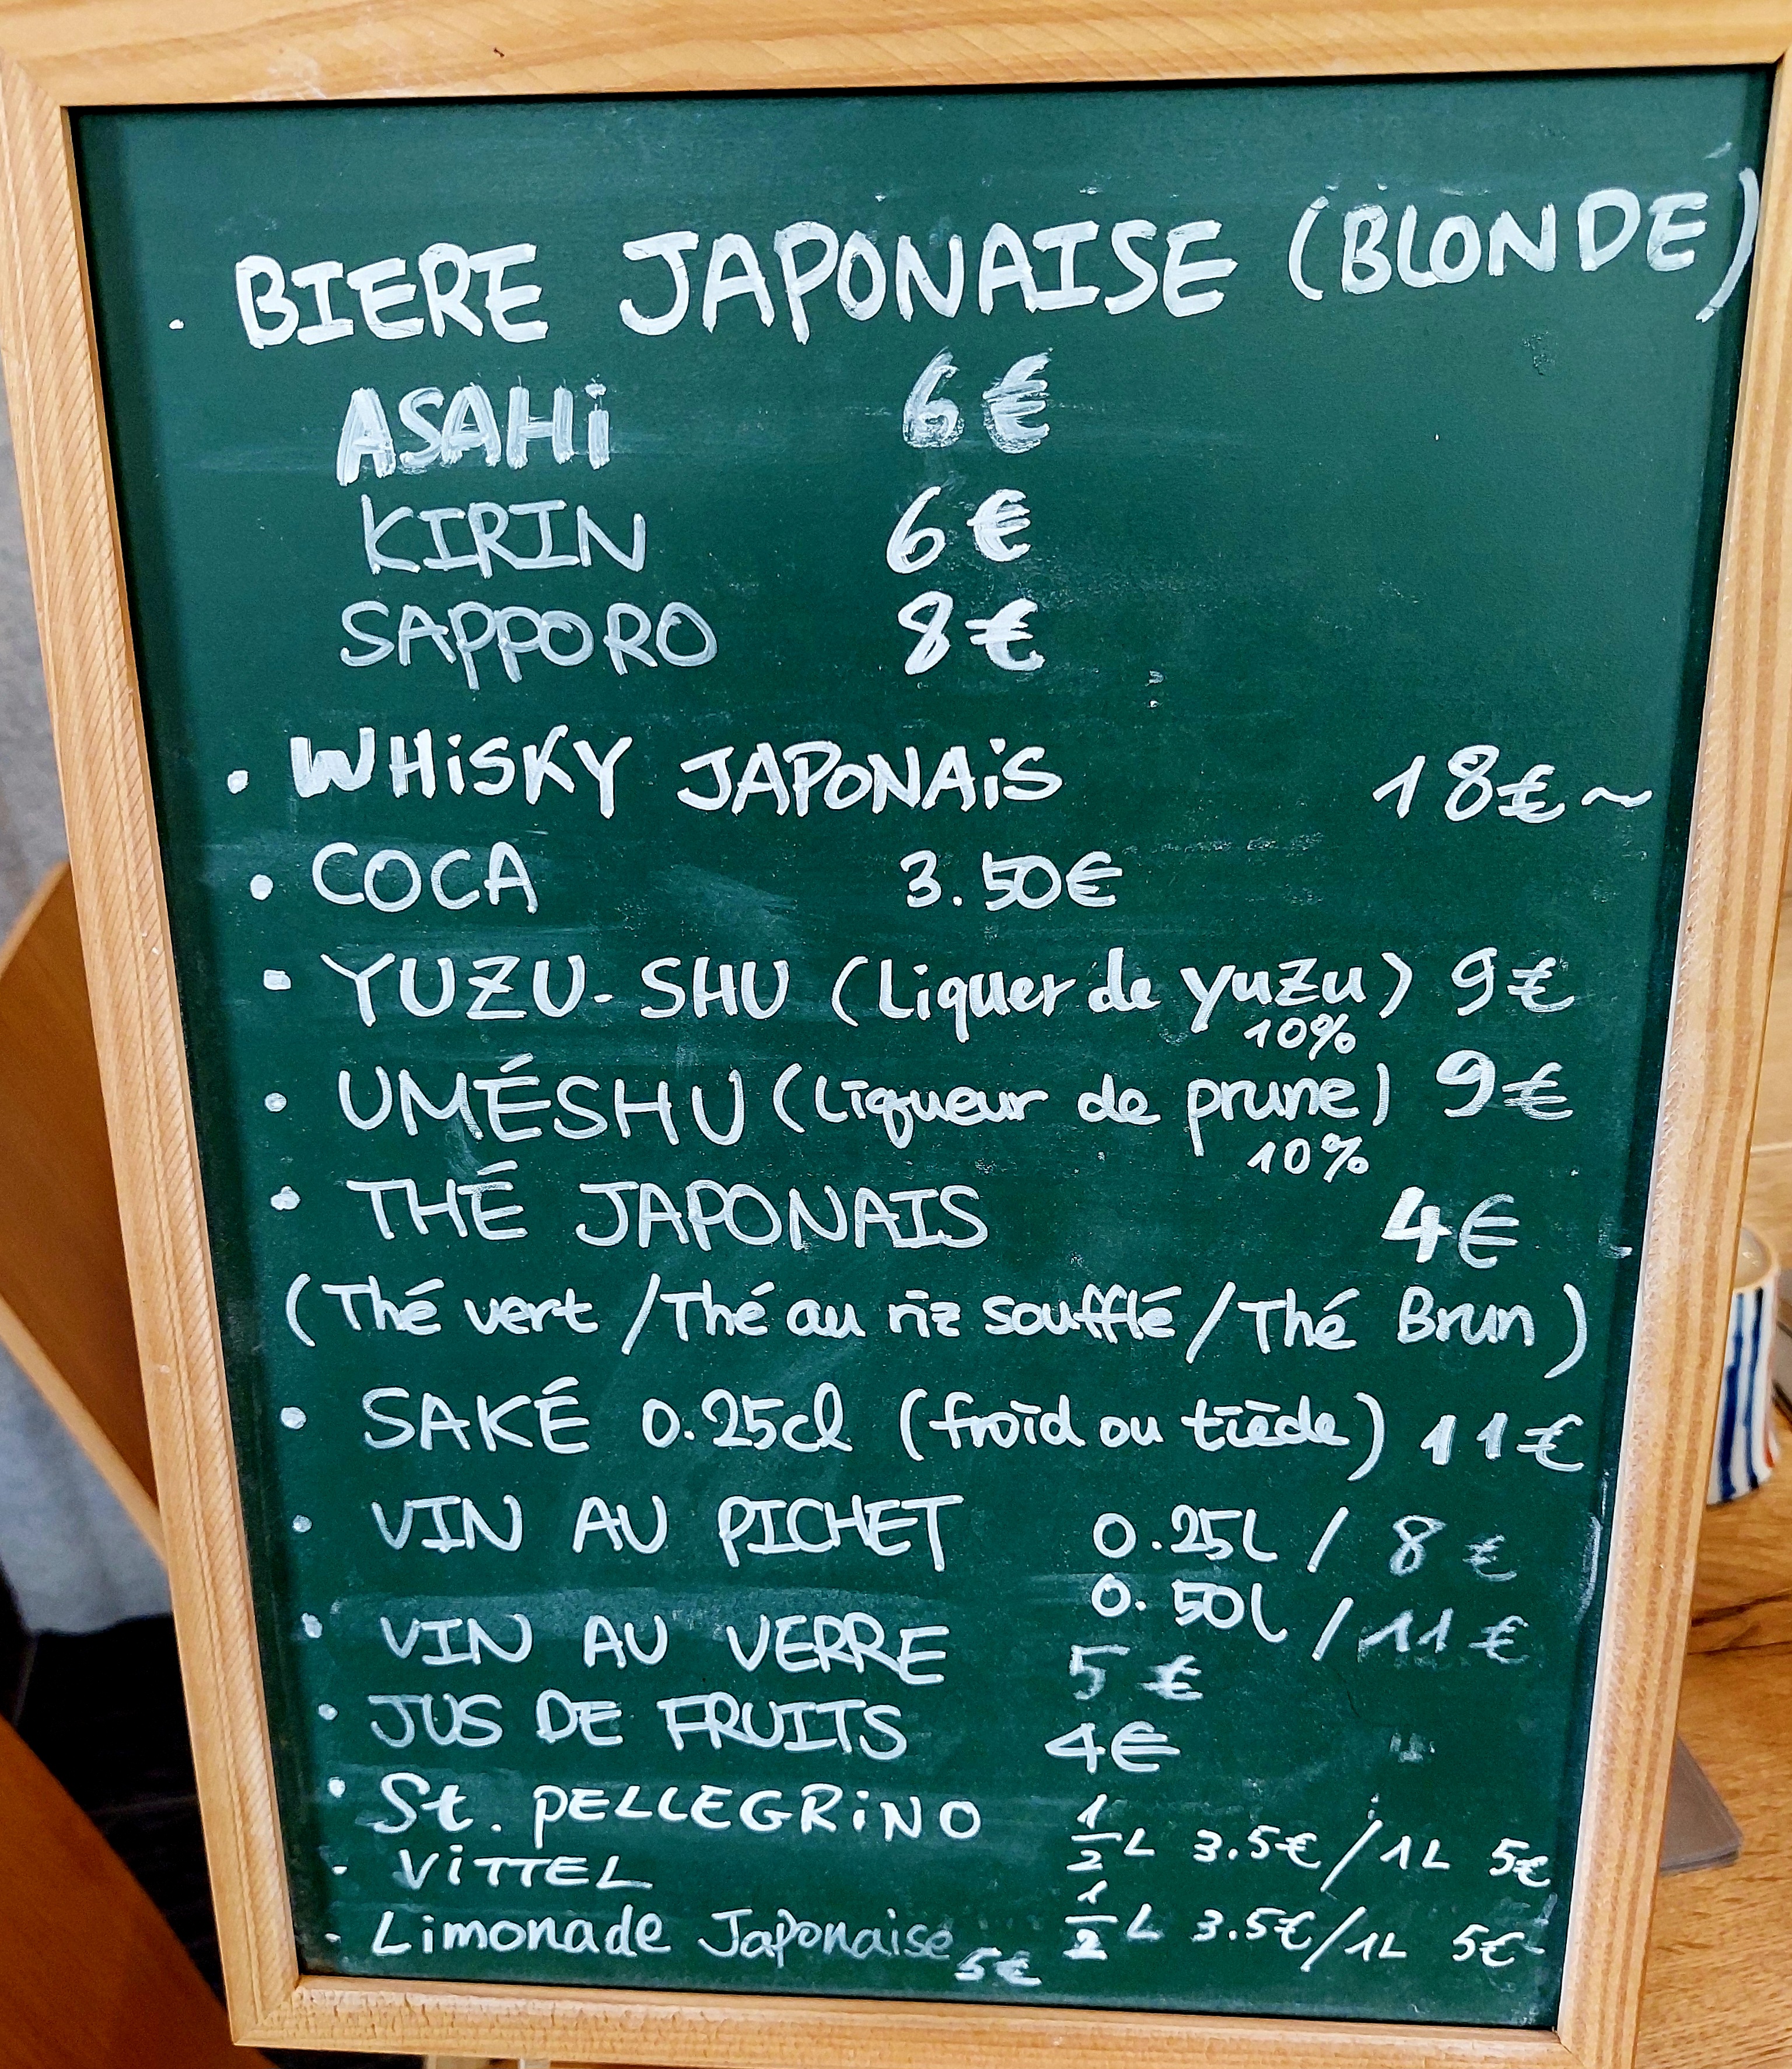 · BIERE JAPONAISE (BLONDE)
ASAHi 6€
KIRIN 6€
SAPPORO 8€
· WHiSKY JAPONAiS 18€~
· COCA 3.50€
· YUZU-SHU (Liquer de yuzu) 9€
10%
· UMÉSHU (Liqueur de prune) 9€
10%
· THÉ JAPONAIS 4€
(Thé vert / Thé au riz soufflé / Thé Brun)
· SAKÉ 0.25cl (froid ou tiède) 11€
· VIN AU PICHET 0.25L / 8 €
0.50l / 11 €
· VIN AU VERRE 5 €
· JUS DE FRUITS 4€
· St. PELLEGRiNO 1/2 L 3.5€ / 1L 5€
· ViTTEL 1/2 L 3.5€ / 1L 5€
· Limonade Japonaise 5€